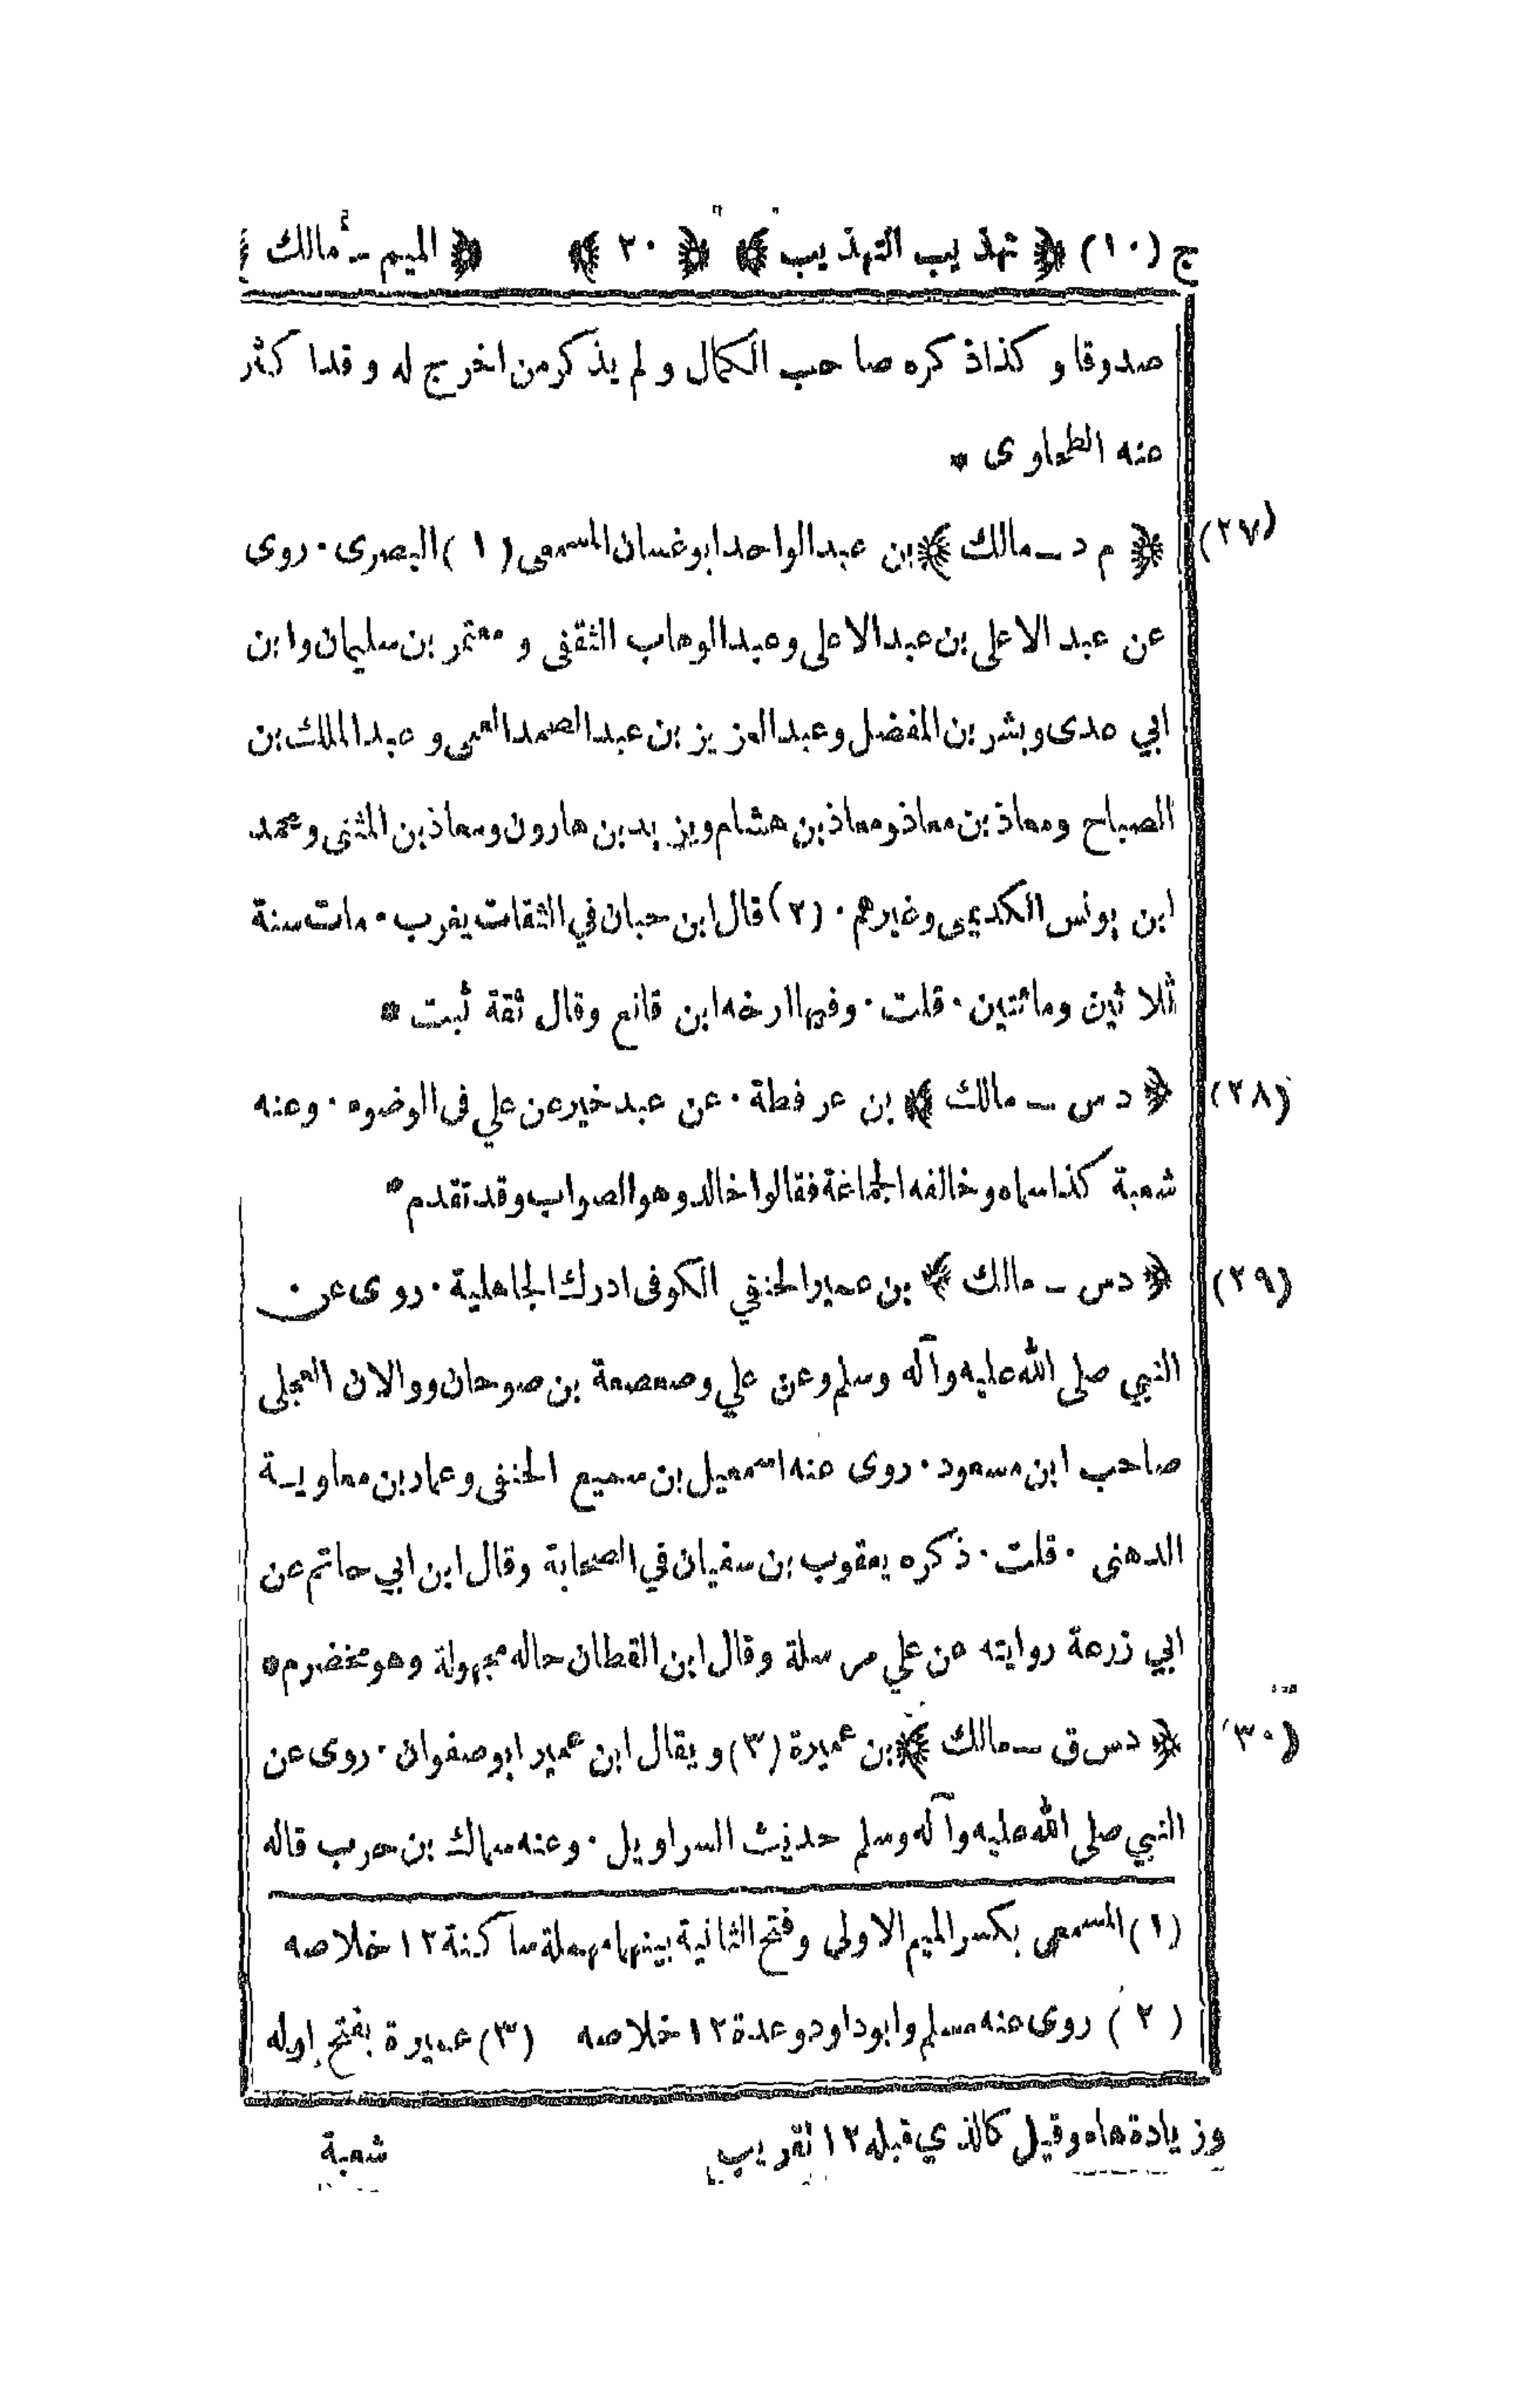 ج (١٠) ﴿ تهذيب التهذيب ﴾ ﴿ ٢٠ ﴾ ﴿ الميم - مالك ﴾
صدوقا وكذا ذكره صاحب الكمال ولم يذكر من اخرج له وقد اكثر
منه الطحاوى *
(٢٧) ﴿ م د ـ مالك ﴾ بن عبد الواحد ابو غسان المسمعى (١) البصرى · روى
عن عبد الاعلى بن عبد الاعلى وعبد الوهاب الثقفى و معتمر بن سليمان وابن
ابي عدى وبشر بن المفضل وعبد العزيز بن عبد الصمد العمى و عبد الملك بن
الصباح ومعاذ بن معاذ ومعاذ بن هشام ويزيد بن هارون ومعاذ بن المثنى ومحمد
ابن يونس الكديمى وغيرهم · (٢) قال ابن حبان في الثقات يغرب · مات سنة
ثلاثين ومائتين · قلت · وفيها ارخه ابن قانع وقال ثقة ثبت *
(٢٨) ﴿ د س ـ مالك ﴾ بن عرفطة · عن عبد خير عن علي فى الوضوء · وعنه
شعبة كذا سماه وخالفه الجماعة فقالوا خالد وهو الصواب وقد تقدم *
(٢٩) ﴿ د س ـ مالك ﴾ بن عمير الحنفي الكوفى ادرك الجاهلية · روى عن
النبي صلى الله عليه وآله وسلم وعن علي وصعصعة بن صوحان ووالان العجلى
صاحب ابن مسعود · روى عنه اسمعيل بن سميع الحنفى وعمار بن معاوية
الدهنى · قلت · ذكره يعقوب بن سفيان في الصحابة وقال ابن ابي حاتم عن
ابي زرعة روايته عن علي مرسلة وقال ابن القطان حاله مجهولة وهو مخضرم *
(٣٠) ﴿ د س ق ـ مالك ﴾ بن عميرة (٣) ويقال ابن عمير ابو صفوان · روى عن
النبي صلى الله عليه وآله وسلم حديث السراويل · وعنه سماك بن حرب قاله
(١) المسمعى بكسر الميم الاولى وفتح الثانية بينهما مهملة ساكنة ١٢ خلاصه
(٢) روى عنه مسلم وابو داود وعدة ١٢ خلاصه (٣) عميرة بفتح اوله
وزيادة هاء وقيل كالذي قبله ١٢ تقريب شعبة